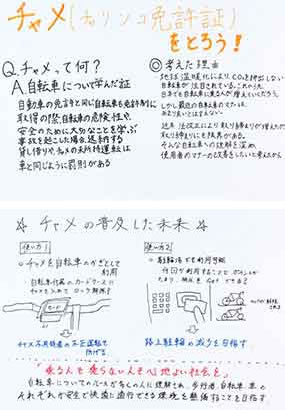 チャメ(チャリンコ免許証)
をとろう!
Q.チャメって何?
A.自転車について学んだ証
自動車の免許と同じ自転車も免許制に
取得の際、自転車の危険性や
安全のために大切なことを学ぶ
事故を起こした場合返納する
貸し借りや、チャメの未所持運転は
車と同じように罰則がある
◎考えた理由
地球温暖化により、CO₂を排出しない
自転車が注目されている。これから
日本でも自転車に乗る人が増えていくだろう。
しかし最近の自転車のマナーは、
あまり良いとはいえない…
近年、法改正により取り締まりが増えたが
取り締まりにも限界がある。
そんな自転車への理解を深め、
使用者のマナーの改善をしたいと考えたから
☆ チャメの普及した未来 ☆
使い方1
○チャメを自転車のかぎとして
利用
自転車付属のカードケースに
チャメを入れてロック解除!
カード
チャメ不所持者の不正運転を
防げる
使い方2
○駐輪場でも利用可能
何回か利用することでポイントが
たまり、특
路上駐輪の減少を目指す
"乗る人も乗らない人も心地よい社会を"
自転車についてのルールが多くの人に理解され、歩行者、自転車、車の
それぞれが安全で快適に通行できる環境を整備することを目指す